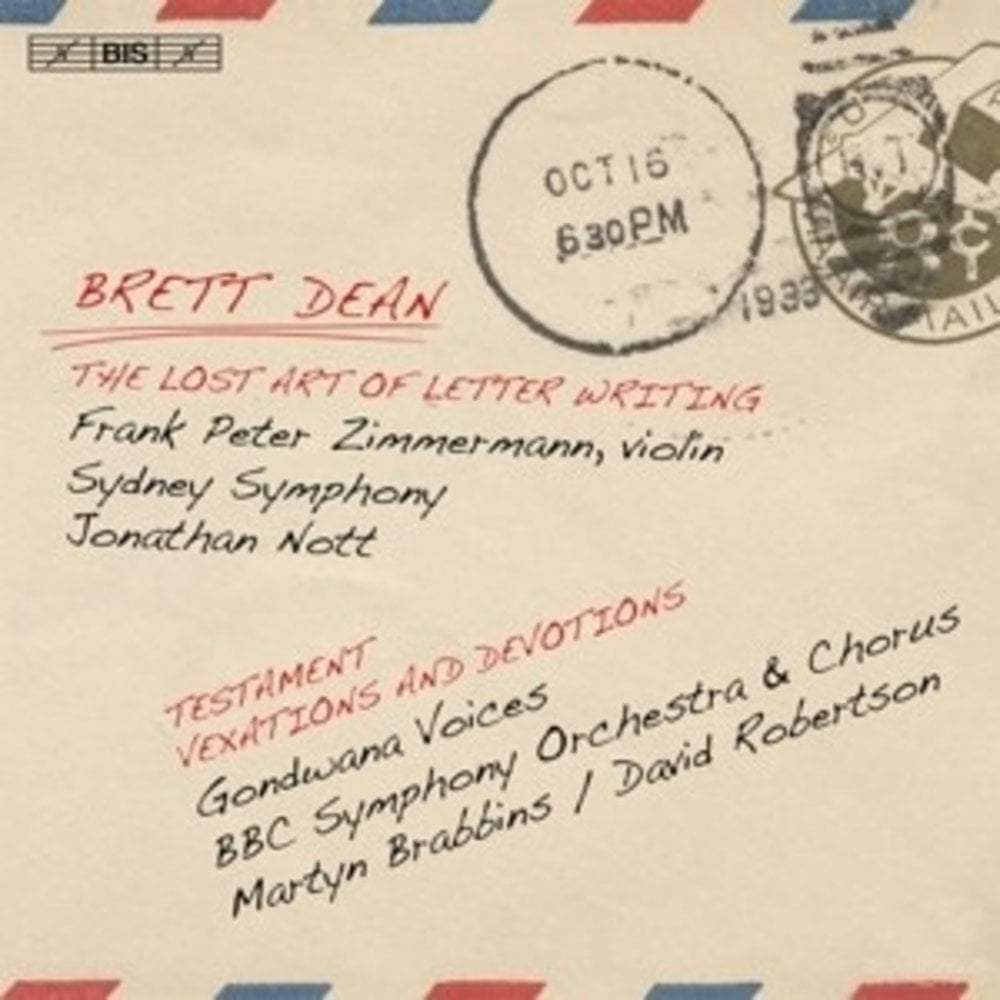 BIS
OCT 16
630PM
1933
BRETT DEAN
THE LOST ART OF LETTER WRITING
Frank Peter Zimmermann, violin
Sydney Symphony
Jonathan Nott
TESTAMENT
VEXATIONS AND DEVOTIONS
Gondwana Voices
BBC Symphony Orchestra & Chorus
Martyn Brabbins / David Robertson